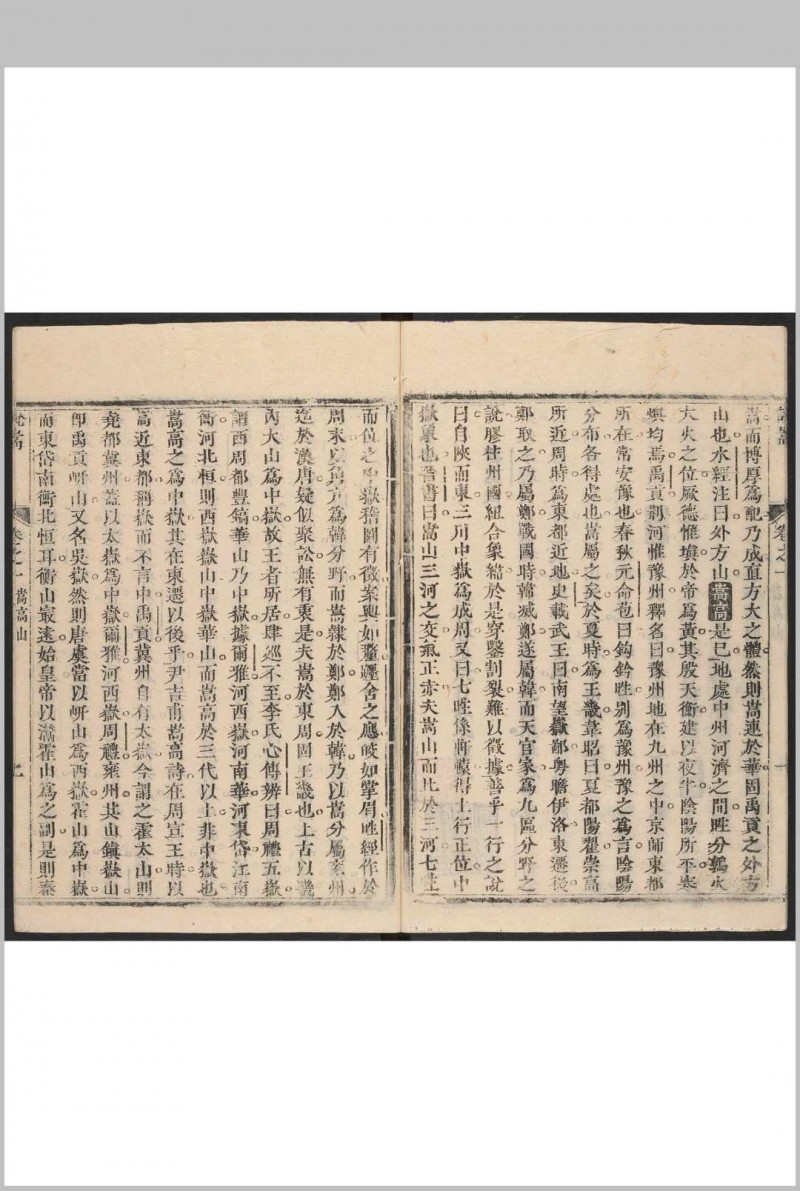 嵩而博厚爲配乃成直方大之體然則嵩連於華固禹貢之外方
山也水經注曰外方山嵩高是已地處中州河濟之間壄分鶉火
大火之位厥德惟塡於帝爲黃其殷天衡建以夜半陰陽所平寒
燠均焉禹貢荆河惟豫州釋名曰豫州地在九州之中京師東都
所在常安豫也春秋元命苞曰鈎鈐壄别爲豫州豫之爲言陰陽
分布各得處也嵩屬之矣於夏時爲王畿韋昭曰夏都陽翟崇高
所近周時爲東都近地史載武王曰南望嶽鄙粤瞻伊洛東遷後
鄭取之乃屬鄭戰國時韓滅鄭遂屬韓而天官家爲九區分野之
說膠柱州國組合象緯於是穿鑿割裂難以徵據善乎一行之說
曰自陝而東三川中嶽爲成周又曰七壄係軒轅得土行正位中
嶽象也晉書曰嵩山三河之交氣正赤夫嵩山而比於三河七壄
而位之中嶽稽圖有徵案輿如
周末以角亢爲韓分野而嵩隸於鄭鄭入於韓乃以嵩分屬兗州
迄於漢唐疑似聚訟無有衷是夫嵩於東周固王畿也上古以畿
内大山爲中嶽故王者所居肆廵不至李氏心傳辨曰周禮五嶽
謂西周都豐鎬華山乃中嶽據爾雅河西嶽河南華河東岱江南
衡河北恒則西嶽嶽山中嶽華山而嵩高於三代以上非中嶽也
嵩高之爲中嶽其在東遷以後乎尹吉甫嵩高詩在周宣王時以
高近東都稱嶽而不言中禹貢冀州自有太嶽今謂之霍太山則
堯都冀州蓋以太嶽爲中嶽爾雅河西嶽周禮雍州其山鎮嶽山
卽禹貢岍山又名吳嶽然則唐虞當以岍山爲西嶽霍山爲中嶽
而東岱南衡北恒耳衡山最遠始皇帝以灊霍山爲之副是則秦
說嵩
卷之一
嵩高山